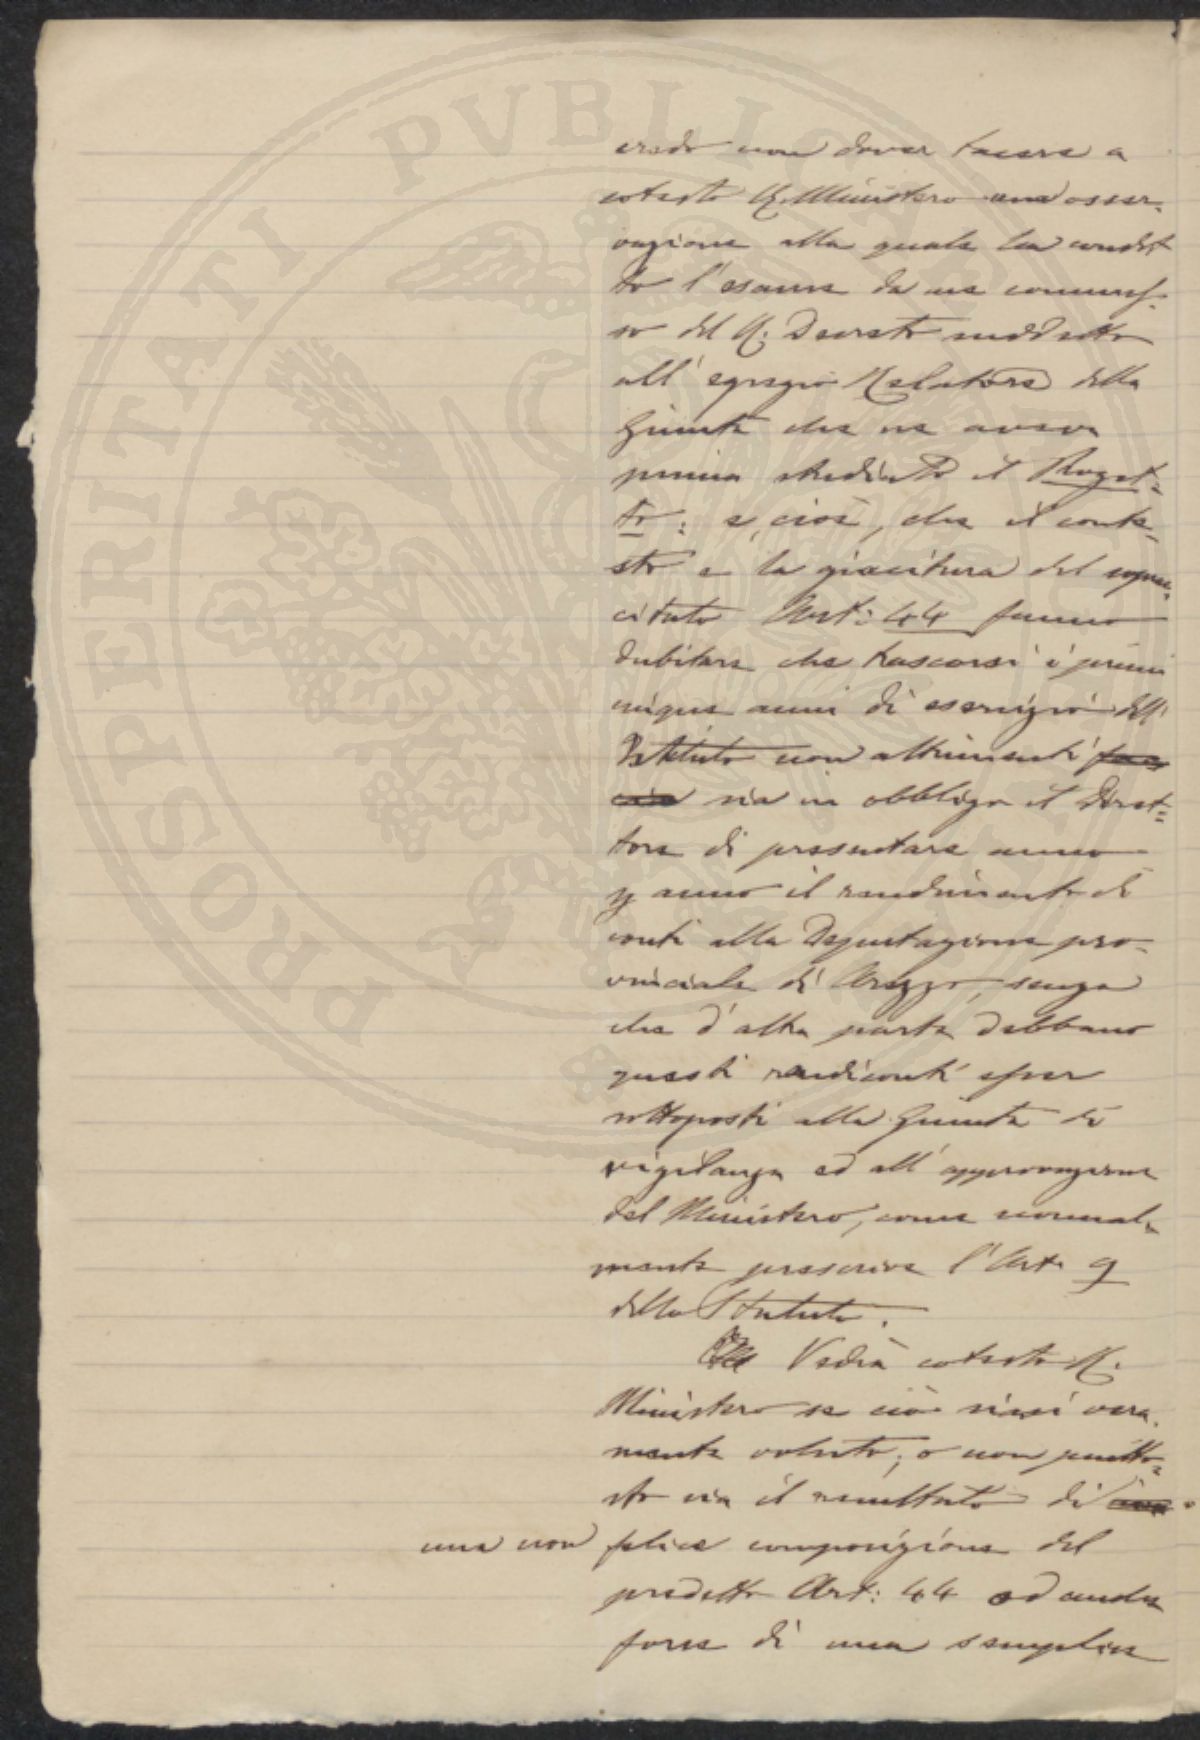 credo non dover tacere a
cotesto R. Ministero una osser-
vazione alla quale ha condot
to l'esame da me commes-
so del R. Decreto suddetto
all'egregio Relatore della
Giunta che ne aveva
prima studiato il Proget-
to: e, cioè, che il conte-
sto e la giacitura del sopra-
citato Art: 44 fanno
dubitare che trascorsi i primi
cinque anni di esercizio dell'
Istituto non altrimenti
sia in obbligo il Diret-
tore di presentare anno
p anno il rendimento di
conti alla Deputazione pro-
vinciale di Arezzo, senza
che d'altra parte debbano
questi rendiconti esser
sottoposti alla Giunta di
vigilanza ed all'approvazione
del Ministero, come normal-
mente prescrive l'Art. 9
dello Statuto.
Vedrà cotesto R.
Ministero se ciò siasi vera-
mente voluto; o non piutto-
sto sia il resultato di
una non felice composizione del
predetto Art: 44 ed anche
forse di una semplice
PROSPERITATI PVBLICAE